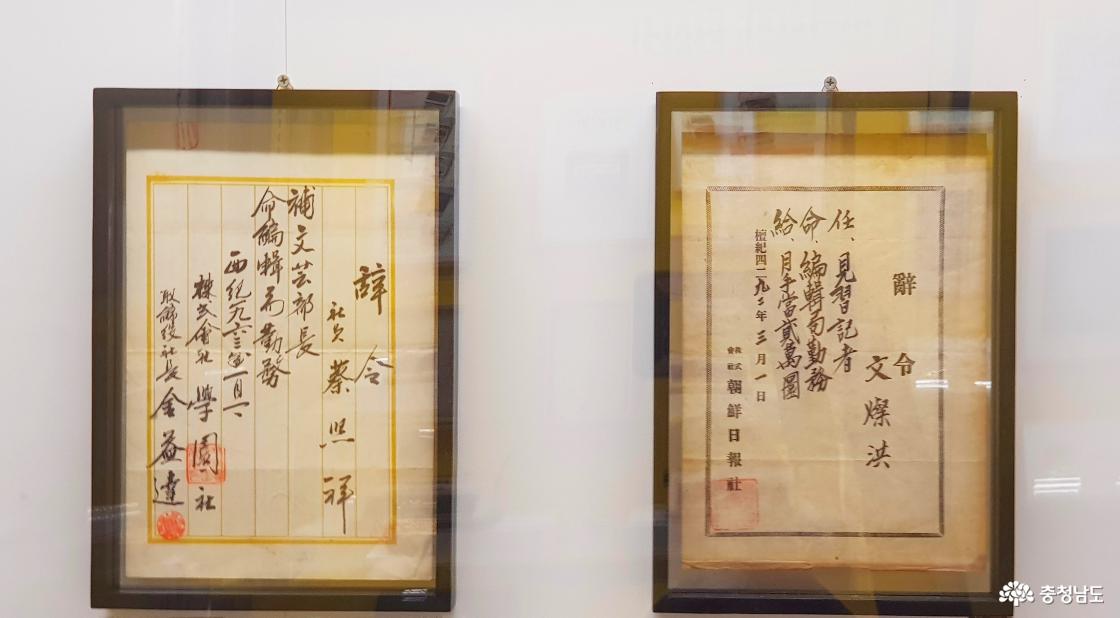 辞令
社員 蔡熙祥
補文芸部長
命編輯局勤務
株式會社 學園社
取締役社長 金益達
辭令
文燦洪
任、見習記者
命、編輯局勤務
給、月手當貳萬圜
檀紀四二九二年三月一日
株式會社 朝鮮日報社
충청남도